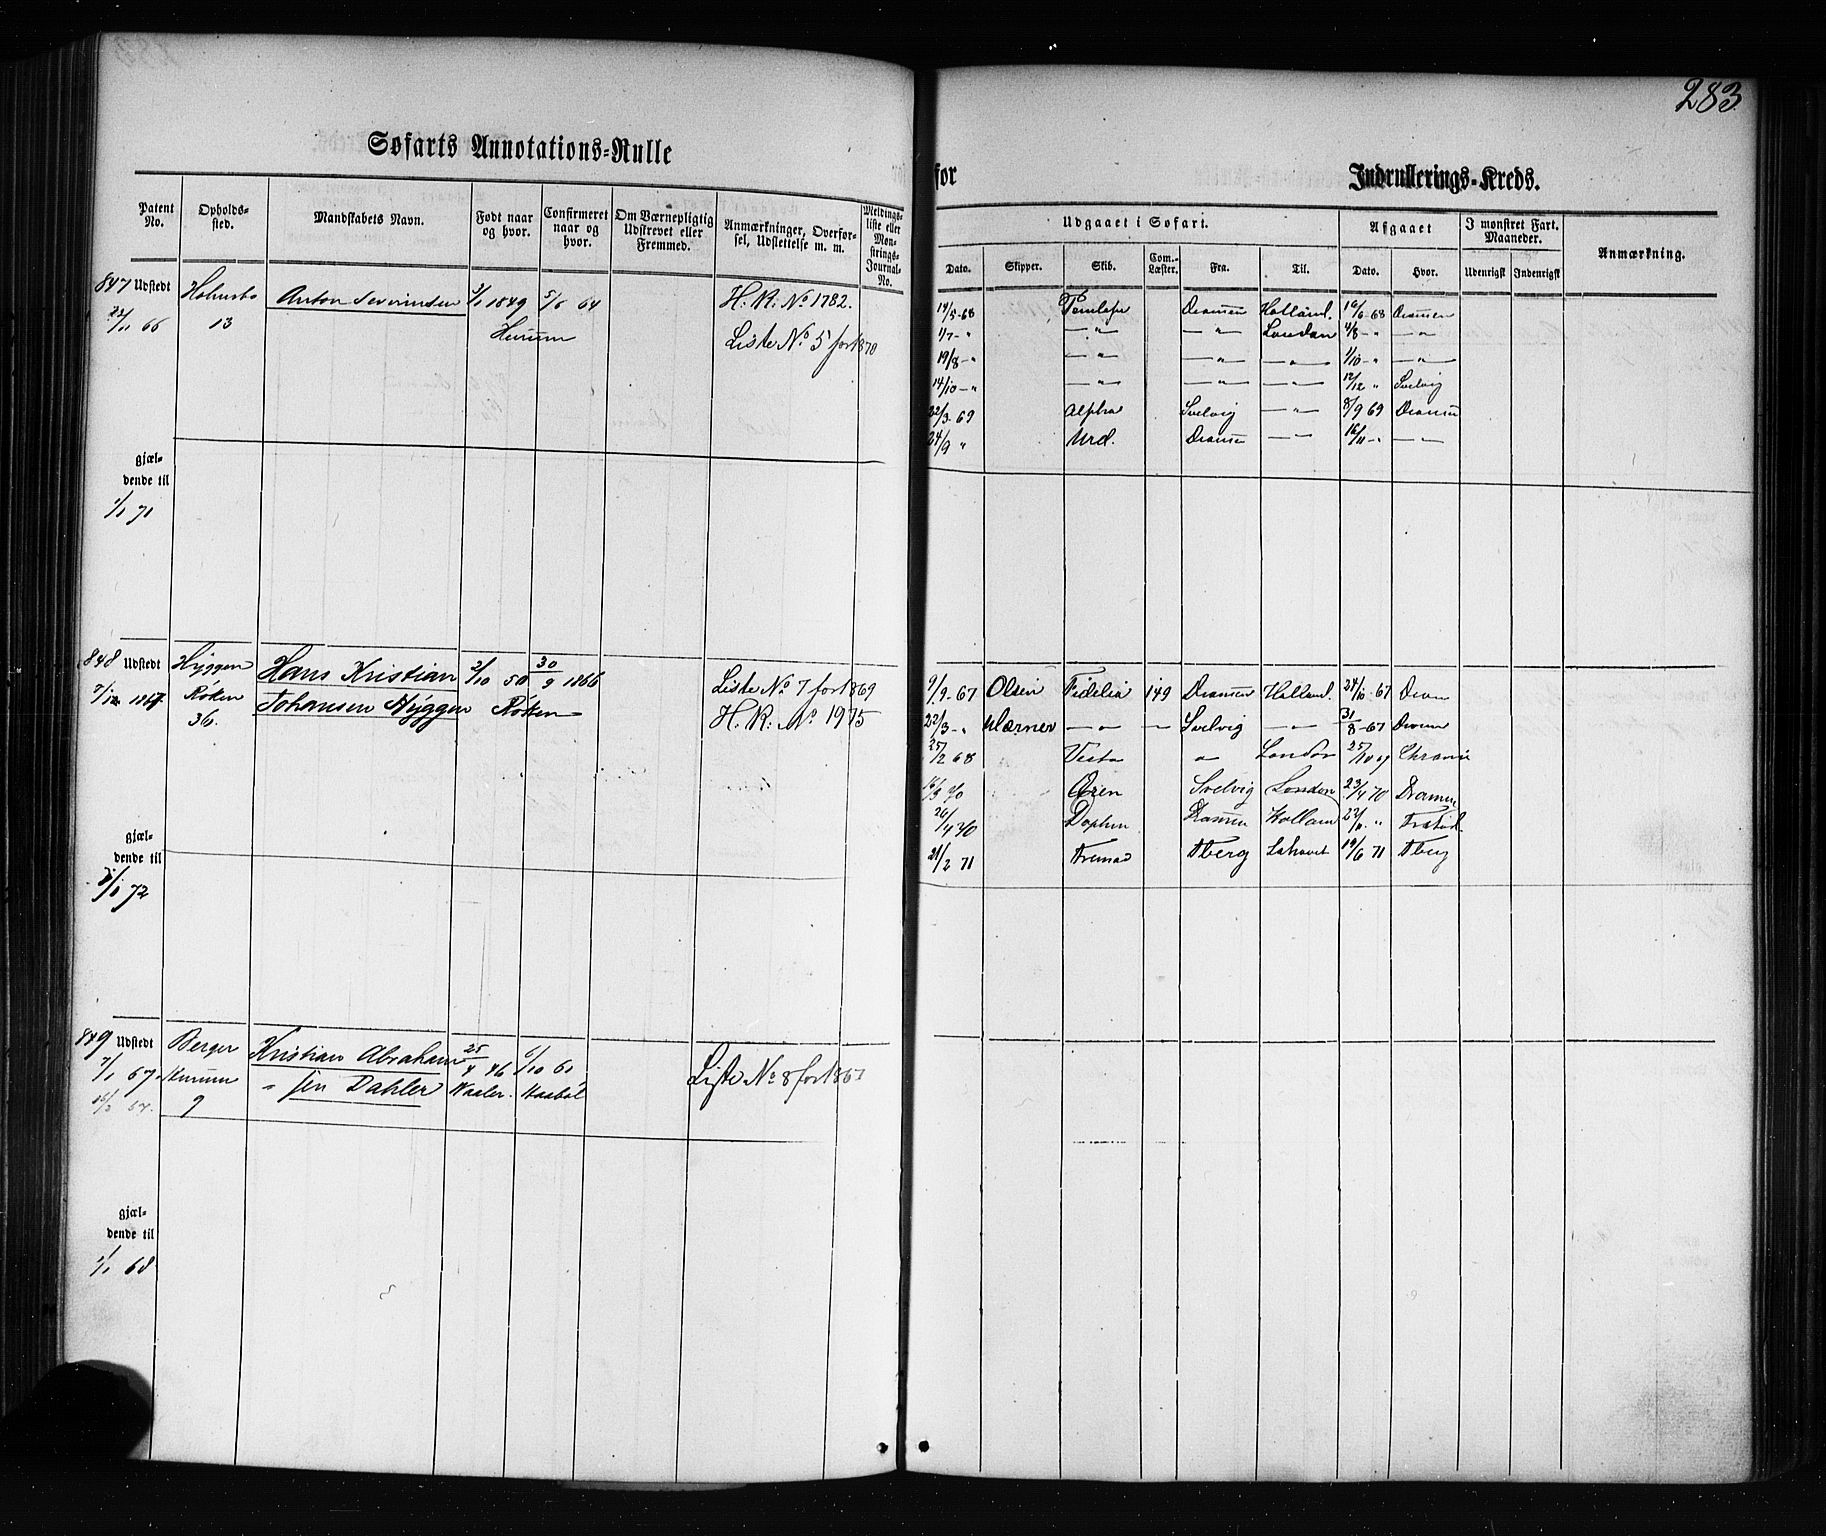 283
Søfarts Annotations-Rulle
for
Indrullerings-Kreds.
Patent No.
Opholds-sted.
Mandskabets Navn.
Født naar og hvor.
Confirmeret naar og hvor.
Om Værnepligtig Udskrevet eller Fremmed.
Anmærkninger, Overførsel, Udslettelse m. m.
Meldings-liste eller Mønstrings-Journal-No.
Udgaaet i Søfart.
Afgaaet
I mønstret Fart. Maaneder.
Anmærkning.
Dato. Skipper. Skib. Com.-Læster. Fra. Til. Dato. Hvor. Udenrigsk Indenrigsk
847 Udstedt 23/11 66
Holmsbo 13
Anton Severinsen
1/1 1849 Hurum
5/6 64
H. R: No 1782.
Liste No 5 for 1870
gjæl-
dende til
1/1 71
14/5-68 Penelope Dramen Holland. 16/6-68 Dramen
1/7-" —"— —"— London 4/8-" —"—
19/8-" —"— —"— —"— 1/10-" —"—
14/10-" —"— —"— —"— 12/12 " Svelvig
22/3-69 Alpha Svelvig —"— 8/9 69 Dramen
24/9 " Urd. Dramen —"— 16/11-" —"—
848 Udstedt
Hyggen
Røken
36.
Hans Kristian
Johansen Hyggen
2/10 50 Røken
30/9 1866
Liste No 7 for 1869
H. R: No 1975
gjæl-
dende til
1/1 72
9/9-67 Olsen Fidelia 149 Dramen Holland. 24/10-67 Dram
22/3-" —"— — Svelvig —"— 31/8-67 Dram
25/2 68 Vesta " London
16/3 70 Svelvig London 23/4 70 Dramen
26/4 70 Dramen Holland 22/11 "
21/2 71 Tberg 19/6 71 Tberg
849 Udstedt
7/1 67.
Berger
Hurum
9
Kristian Abraham-
" sen Dahler
25/4 46 Vaaler.
6/10 61 Haabøl
Liste No 8 for 1867
gjæl-
dende til
1/1 68